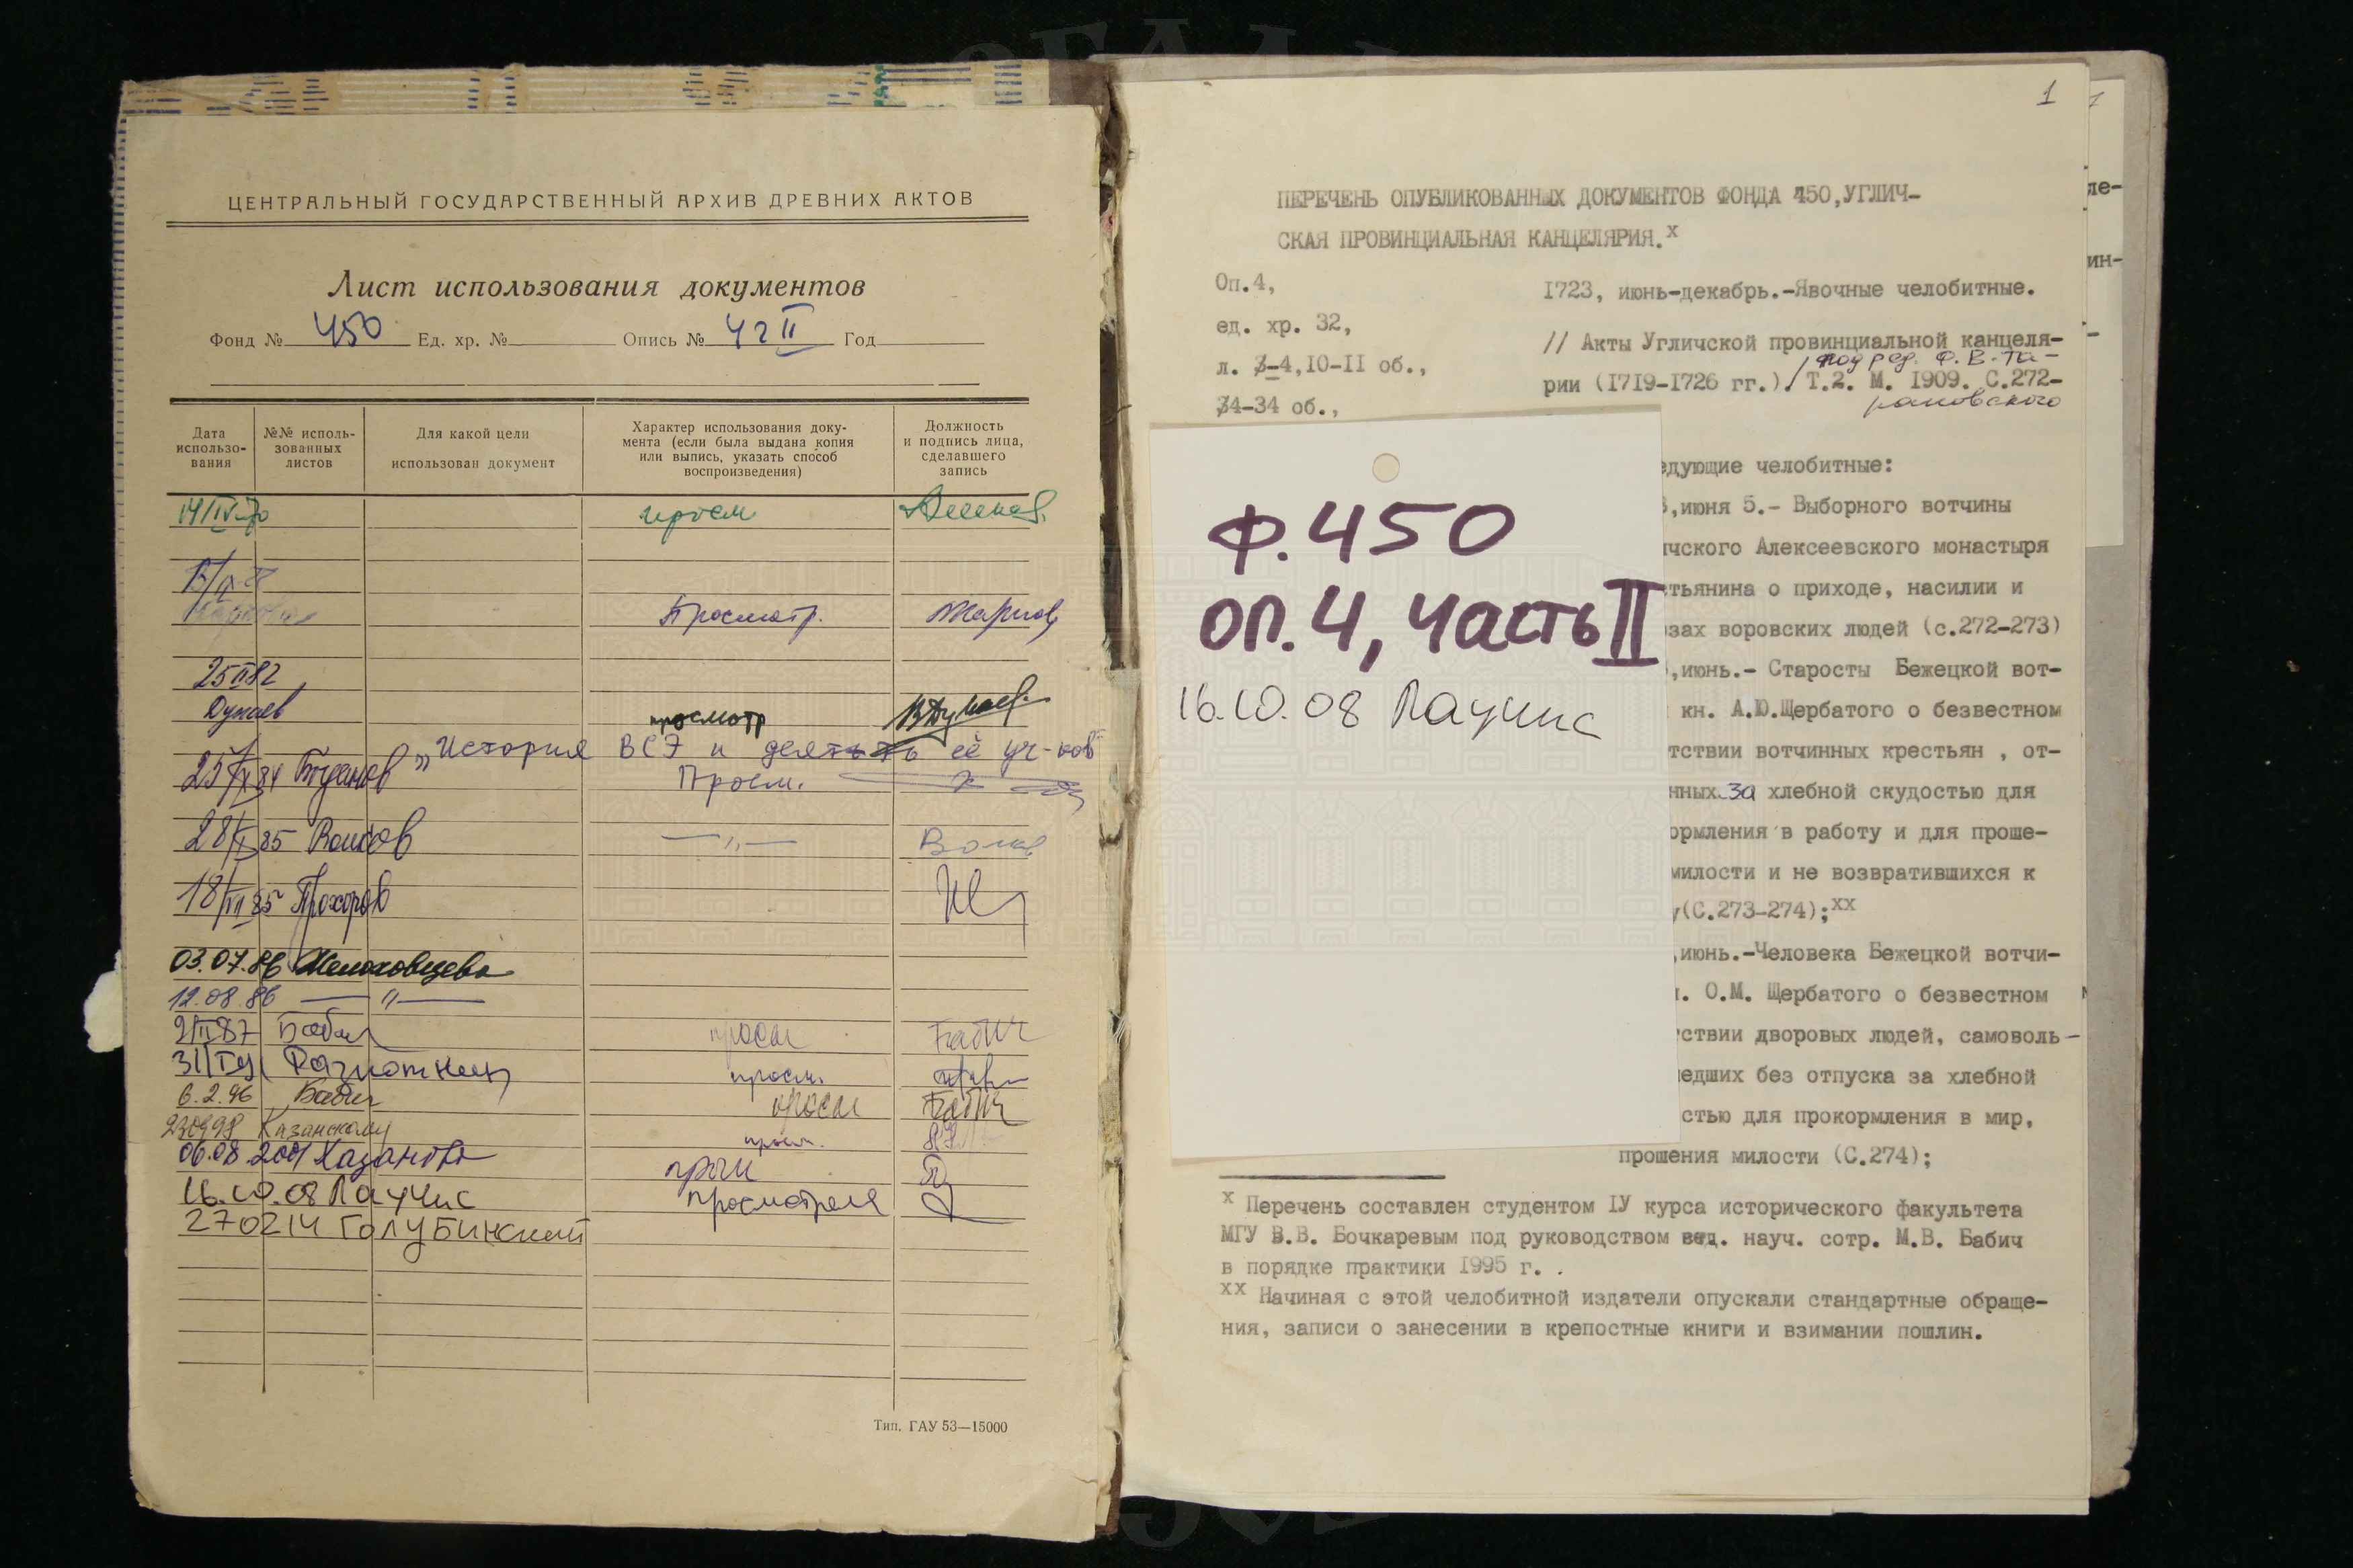 ЦЕНТРАЛЬНЫЙ ГОСУДАРСТВЕННЫЙ АРХИВ ДРЕВНИХ АКТОВ
Лист использования документов
Фонд № 450 Ед. хр. № Опись № 4 г II Год
Дата использо-вания
№№ исполь-зованных листов
Для какой цели использован документ
Характер использования доку-мента (если была выдана копия или выпись, указать способ воспроизведения)
Должность и подпись лица, сделавшего запись
14/IV-70 просм
Просмотр.
25 II 82
Дунаев просмотр
„История ВСЭ и деят-ть её уч-ков"
25/XI 84 Богданов Просм.
28/X 85 Волков —„— Волков
18/VII 85 Прохоров
03.07.86
12.08.86 —„—
2/II 87 Бабич просм Бабич
просм.
6.2.96 Бабич просм Бабич
просм.
06.08.2001 Хазанова просм
16.10.08 Лаучис просмотрела
270214 ГОЛУБИНСКИЙ
Тип. ГАУ 53—15000
1
ПЕРЕЧЕНЬ ОПУБЛИКОВАННЫХ ДОКУМЕНТОВ ФОНДА 450,УГЛИЧ-
СКАЯ ПРОВИНЦИАЛЬНАЯ КАНЦЕЛЯРИЯ.x
Оп.4,
ед. хр. 32,
л. 3-4,10-11 об.,
34-34 об.,
1723, июнь-декабрь.-Явочные челобитные.
// Акты Угличской провинциальной канцеля-
под ред. Ф. В. Та-
рии (1719-1726 гг.). Т.2. М. 1909. С.272-
рановского
едующие челобитные:
,июня 5.- Выборного вотчины
чского Алексеевского монастыря
стьянина о приходе, насилии и
зах воровских людей (с.272-273)
,июнь.- Старосты Бежецкой вот-
кн. А.Ю.Щербатого о безвестном
тствии вотчинных крестьян , от-
нных за хлебной скудостью для
ормления в работу и для проше-
милости и не возвратившихся к
у(С.273-274);xx
,июнь.-Человека Бежецкой вотчи-
. О.М. Щербатого о безвестном
ствии дворовых людей, самоволь-
едших без отпуска за хлебной
стью для прокормления в мир,
прошения милости (С.274);
Ф.450
оп.4, часть II
16.10.08 Лаучис
x Перечень составлен студентом IУ курса исторического факультета
МГУ В.В. Бочкаревым под руководством вед. науч. сотр. М.В. Бабич
в порядке практики 1995 г. .
xx Начиная с этой челобитной издатели опускали стандартные обраще-
ния, записи о занесении в крепостные книги и взимании пошлин.
ле-
ин-